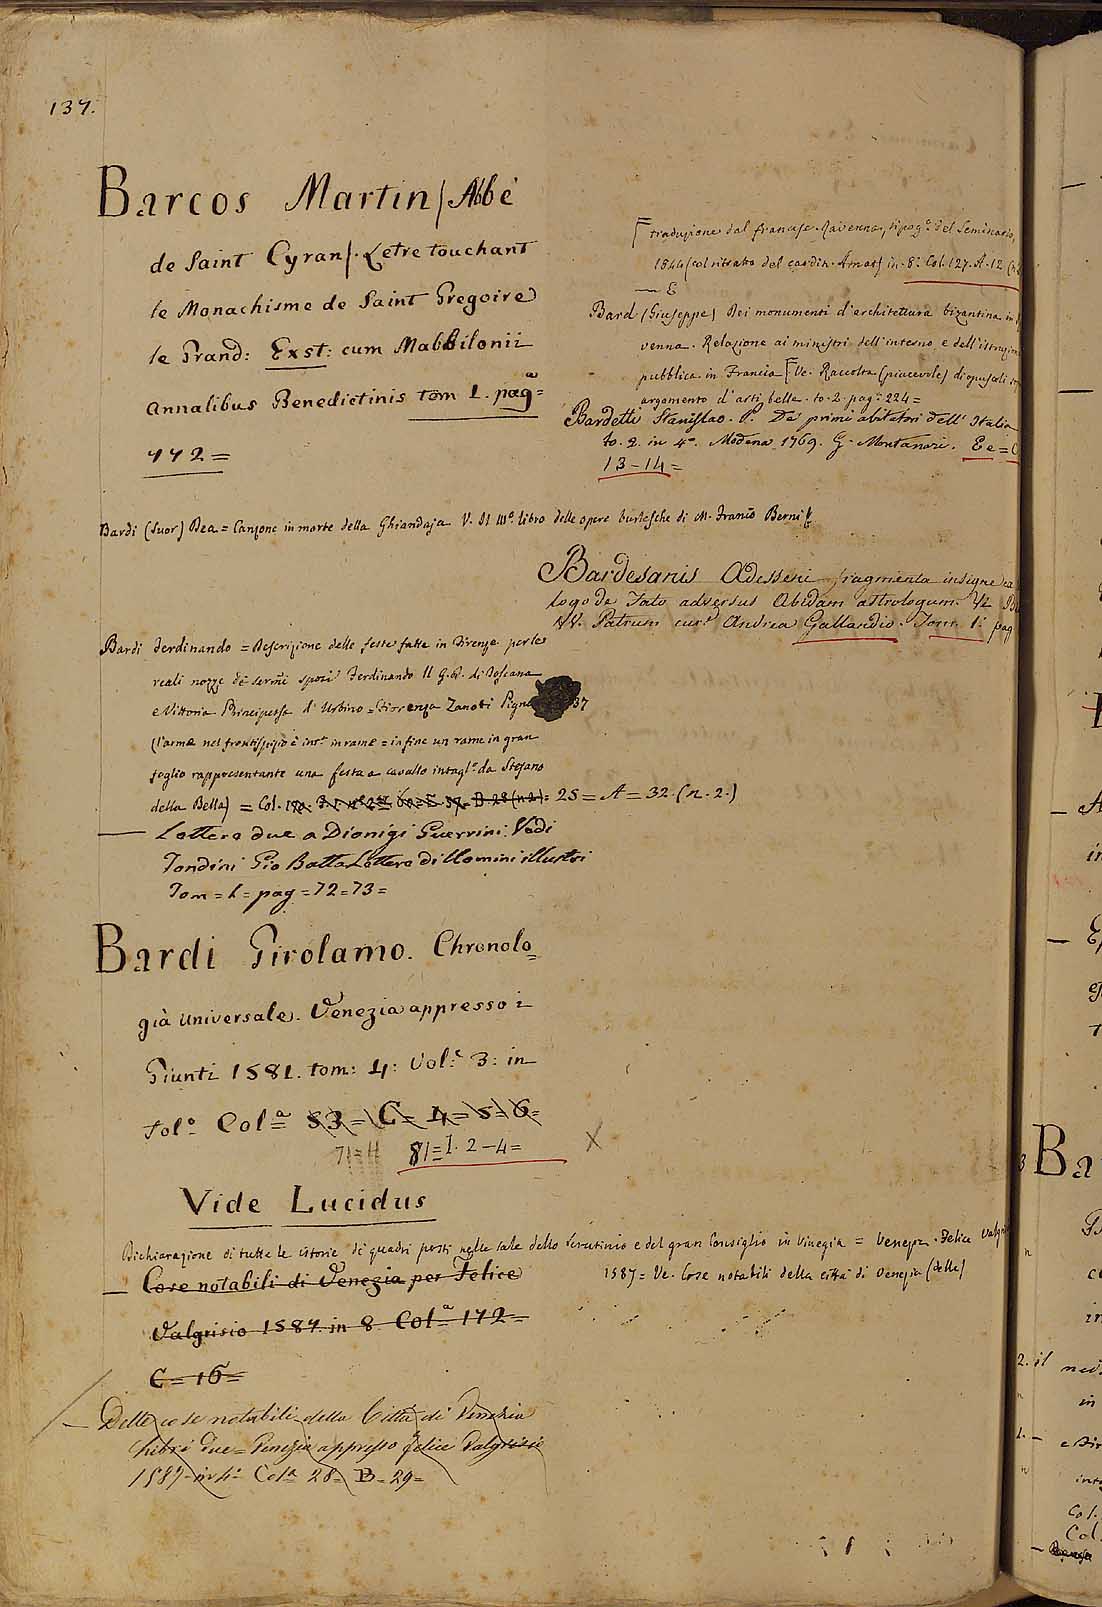 137.
Barcos Martin / Abbè
de Saint Cyran /. Letre touchant
le Monachisme de Saint Gregoire
le Grand: Exst: cum Mabbilonii
Annalibus Benedictinis tom I. pagª=
772=
traduzione dal francese. Ravenna, tipogª del Seminario,
1844 (col ritratto del cardin. Amat) in 8º. Col. 127. A. 12
— E
Bard (Giuseppe) Dei monumenti d'architettura bizantina in
venna. Relazione ai ministri dell'interno e dell'istruzione
pubblica in Francia Ve. Raccolta (piacevole) di opuscoli
argomento d'arti belle. to. 2. pagª 224=
Bardetti Stanislao. P. De' primi abitatori dell'Italia
to. 2. in 4º. Modena 1769. G. Montanari. Ee=
13-14=
Bardi (Suor) Dea = Canzone in morte della Ghiandaja V. Il IIIº. libro delle opere burlesche di M. Franco Berni
Bardesanis Edesseni fragmenta insigne
logo de Fato adversus Abidam astrologum.
VV. Patrum curª Andrea Gallandio. Tom. 1. pag
Bardi Ferdinando = Descrizione delle feste fatte in Firenze per le
reali nozze de sermi sposi Ferdinando II G. D. di Toscana
e Vittoria Principessa d'Urbino = Fiorenza Zanobi 37
(l'arme nel frontispizio è intª in rame = in fine un rame in gran
foglio rappresentante una festa a cavallo intaglª da Stefano
della Bella) = Col. 25 = A = 32. (n. 2.)
— Lettere due a Dionigi Guerrini. Vedi
Tondini Gio Batta Lettere di Uomini illustri
Tom = I = pag = 72 = 73 =
Bardi Girolamo. Chronolo=
già universale. Venezia appresso i
Giunti 1581. tom: 4: Vol: 3: in
folº Colª 53= C= 4= 5= 6=
71=H 81=I. 2-4=
X
Vide Lucidus
Dichiarazione di tutte le istorie di quadri posti nelle sale dello Scrutinio e del gran Consiglio in Vinegia = Venezª. Felice
1587 = Ve. Cose notabili della città di Venezia (delle)
— Cose notabili di Venezia per Felice
Valgrisio 1587. in 8 Colª 172=
C=16=
— Delle cose notabili della Città di Venezia
Libri due = Venezia appresso Felice Valgrisio
1587 in 4º Colª 28= B= 29=